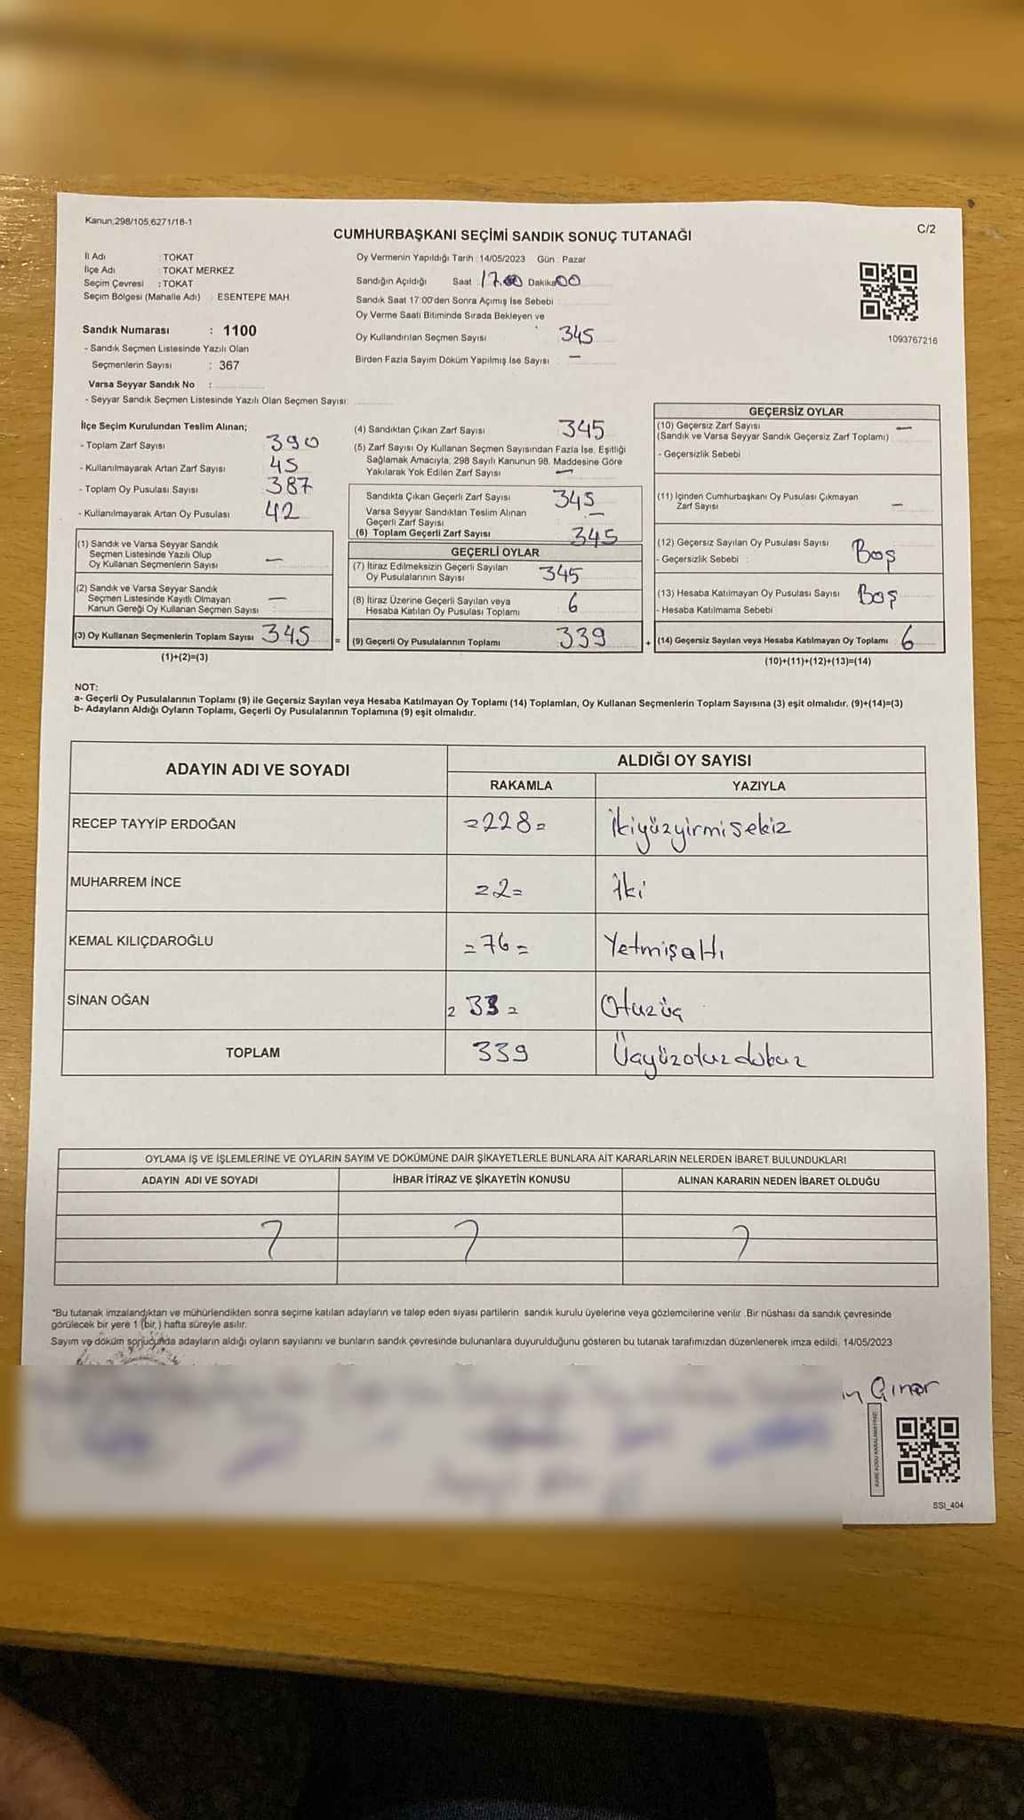 Kanun,298/105,6271/18-1
C/2
CUMHURBAŞKANI SEÇİMİ SANDIK SONUÇ TUTANAĞI
İl Adı : TOKAT
İlçe Adı : TOKAT MERKEZ
Seçim Çevresi : TOKAT
Seçim Bölgesi (Mahalle Adı) : ESENTEPE MAH.
Oy Vermenin Yapıldığı Tarih : 14/05/2023 Gün : Pazar
Sandığın Açıldığı Saat 17.00 Dakika 00
Sandık Saat 17:00'den Sonra Açımış İse Sebebi
Oy Verme Saati Bitiminde Sırada Bekleyen ve
Oy Kullandırılan Seçmen Sayısı 345
Birden Fazla Sayım Döküm Yapılmış İse Sayısı —
1093767216
Sandık Numarası : 1100
- Sandık Seçmen Listesinde Yazılı Olan
Seçmenlerin Sayısı : 367
Varsa Seyyar Sandık No :
- Seyyar Sandık Seçmen Listesinde Yazılı Olan Seçmen Sayısı:
İlçe Seçim Kurulundan Teslim Alınan;
- Toplam Zarf Sayısı 390
- Kullanılmayarak Artan Zarf Sayısı 45
- Toplam Oy Pusulası Sayısı 387
- Kullanılmayarak Artan Oy Pusulası 42
(1) Sandık ve Varsa Seyyar Sandık
Seçmen Listesinde Yazılı Olup
Oy Kullanan Seçmenlerin Sayısı —
(2) Sandık ve Varsa Seyyar Sandık
Seçmen Listesinde Kayıtlı Olmayan
Kanun Gereği Oy Kullanan Seçmen Sayısı —
(3) Oy Kullanan Seçmenlerin Toplam Sayısı 345
(1)+(2)=(3)
(4) Sandıktan Çıkan Zarf Sayısı 345
(5) Zarf Sayısı Oy Kullanan Seçmen Sayısından Fazla İse, Eşitliği
Sağlamak Amacıyla, 298 Sayılı Kanunun 98. Maddesine Göre
Yakılarak Yok Edilen Zarf Sayısı —
Sandıkta Çıkan Geçerli Zarf Sayısı 345
Varsa Seyyar Sandıktan Teslim Alınan
Geçerli Zarf Sayısı —
(6) Toplam Geçerli Zarf Sayısı 345
GEÇERLİ OYLAR
(7) İtiraz Edilmeksizin Geçerli Sayılan
Oy Pusulalarının Sayısı 345
(8) İtiraz Üzerine Geçerli Sayılan veya
Hesaba Katılan Oy Pusulası Toplamı 6
= (9) Geçerli Oy Pusulalarının Toplamı 339
GEÇERSİZ OYLAR
(10) Geçersiz Zarf Sayısı —
(Sandık ve Varsa Seyyar Sandık Geçersiz Zarf Toplamı)
- Geçersizlik Sebebi
(11) İçinden Cumhurbaşkanı Oy Pusulası Çıkmayan
Zarf Sayısı —
(12) Geçersiz Sayılan Oy Pusulası Sayısı Boş
- Geçersizlik Sebebi :
(13) Hesaba Katılmayan Oy Pusulası Sayısı Boş
- Hesaba Katılmama Sebebi
+ (14) Geçersiz Sayılan veya Hesaba Katılmayan Oy Toplamı 6
(10)+(11)+(12)+(13)=(14)
NOT:
a- Geçerli Oy Pusulalarının Toplamı (9) ile Geçersiz Sayılan veya Hesaba Katılmayan Oy Toplamı (14) Toplamları, Oy Kullanan Seçmenlerin Toplam Sayısına (3) eşit olmalıdır. (9)+(14)=(3)
b- Adayların Aldığı Oyların Toplamı, Geçerli Oy Pusulalarının Toplamına (9) eşit olmalıdır.
ADAYIN ADI VE SOYADI
ALDIĞI OY SAYISI
RAKAMLA YAZIYLA
RECEP TAYYİP ERDOĞAN =228= İkiyüzyirmisekiz
MUHARREM İNCE =2= İki
KEMAL KILIÇDAROĞLU =76= Yetmişaltı
SİNAN OĞAN = 33 = Otuzüç
TOPLAM 339 Üçyüzotuzdokuz
OYLAMA İŞ VE İŞLEMLERİNE VE OYLARIN SAYIM VE DÖKÜMÜNE DAİR ŞİKAYETLERLE BUNLARA AİT KARARLARIN NELERDEN İBARET BULUNDUKLARI
ADAYIN ADI VE SOYADI İHBAR İTİRAZ VE ŞİKAYETİN KONUSU ALINAN KARARIN NEDEN İBARET OLDUĞU
*Bu tutanak imzalandıktan ve mühürlendikten sonra seçime katılan adayların ve talep eden siyasi partilerin sandık kurulu üyelerine veya gözlemcilerine verilir. Bir nüshası da sandık çevresinde
görülecek bir yere 1 (bir) hafta süreyle asılır.
Sayım ve döküm sonucunda adayların aldığı oyların sayılarını ve bunların sandık çevresinde bulunanlara duyurulduğunu gösteren bu tutanak tarafımızdan düzenlenerek imza edildi. 14/05/2023
Çınar
SSI_404